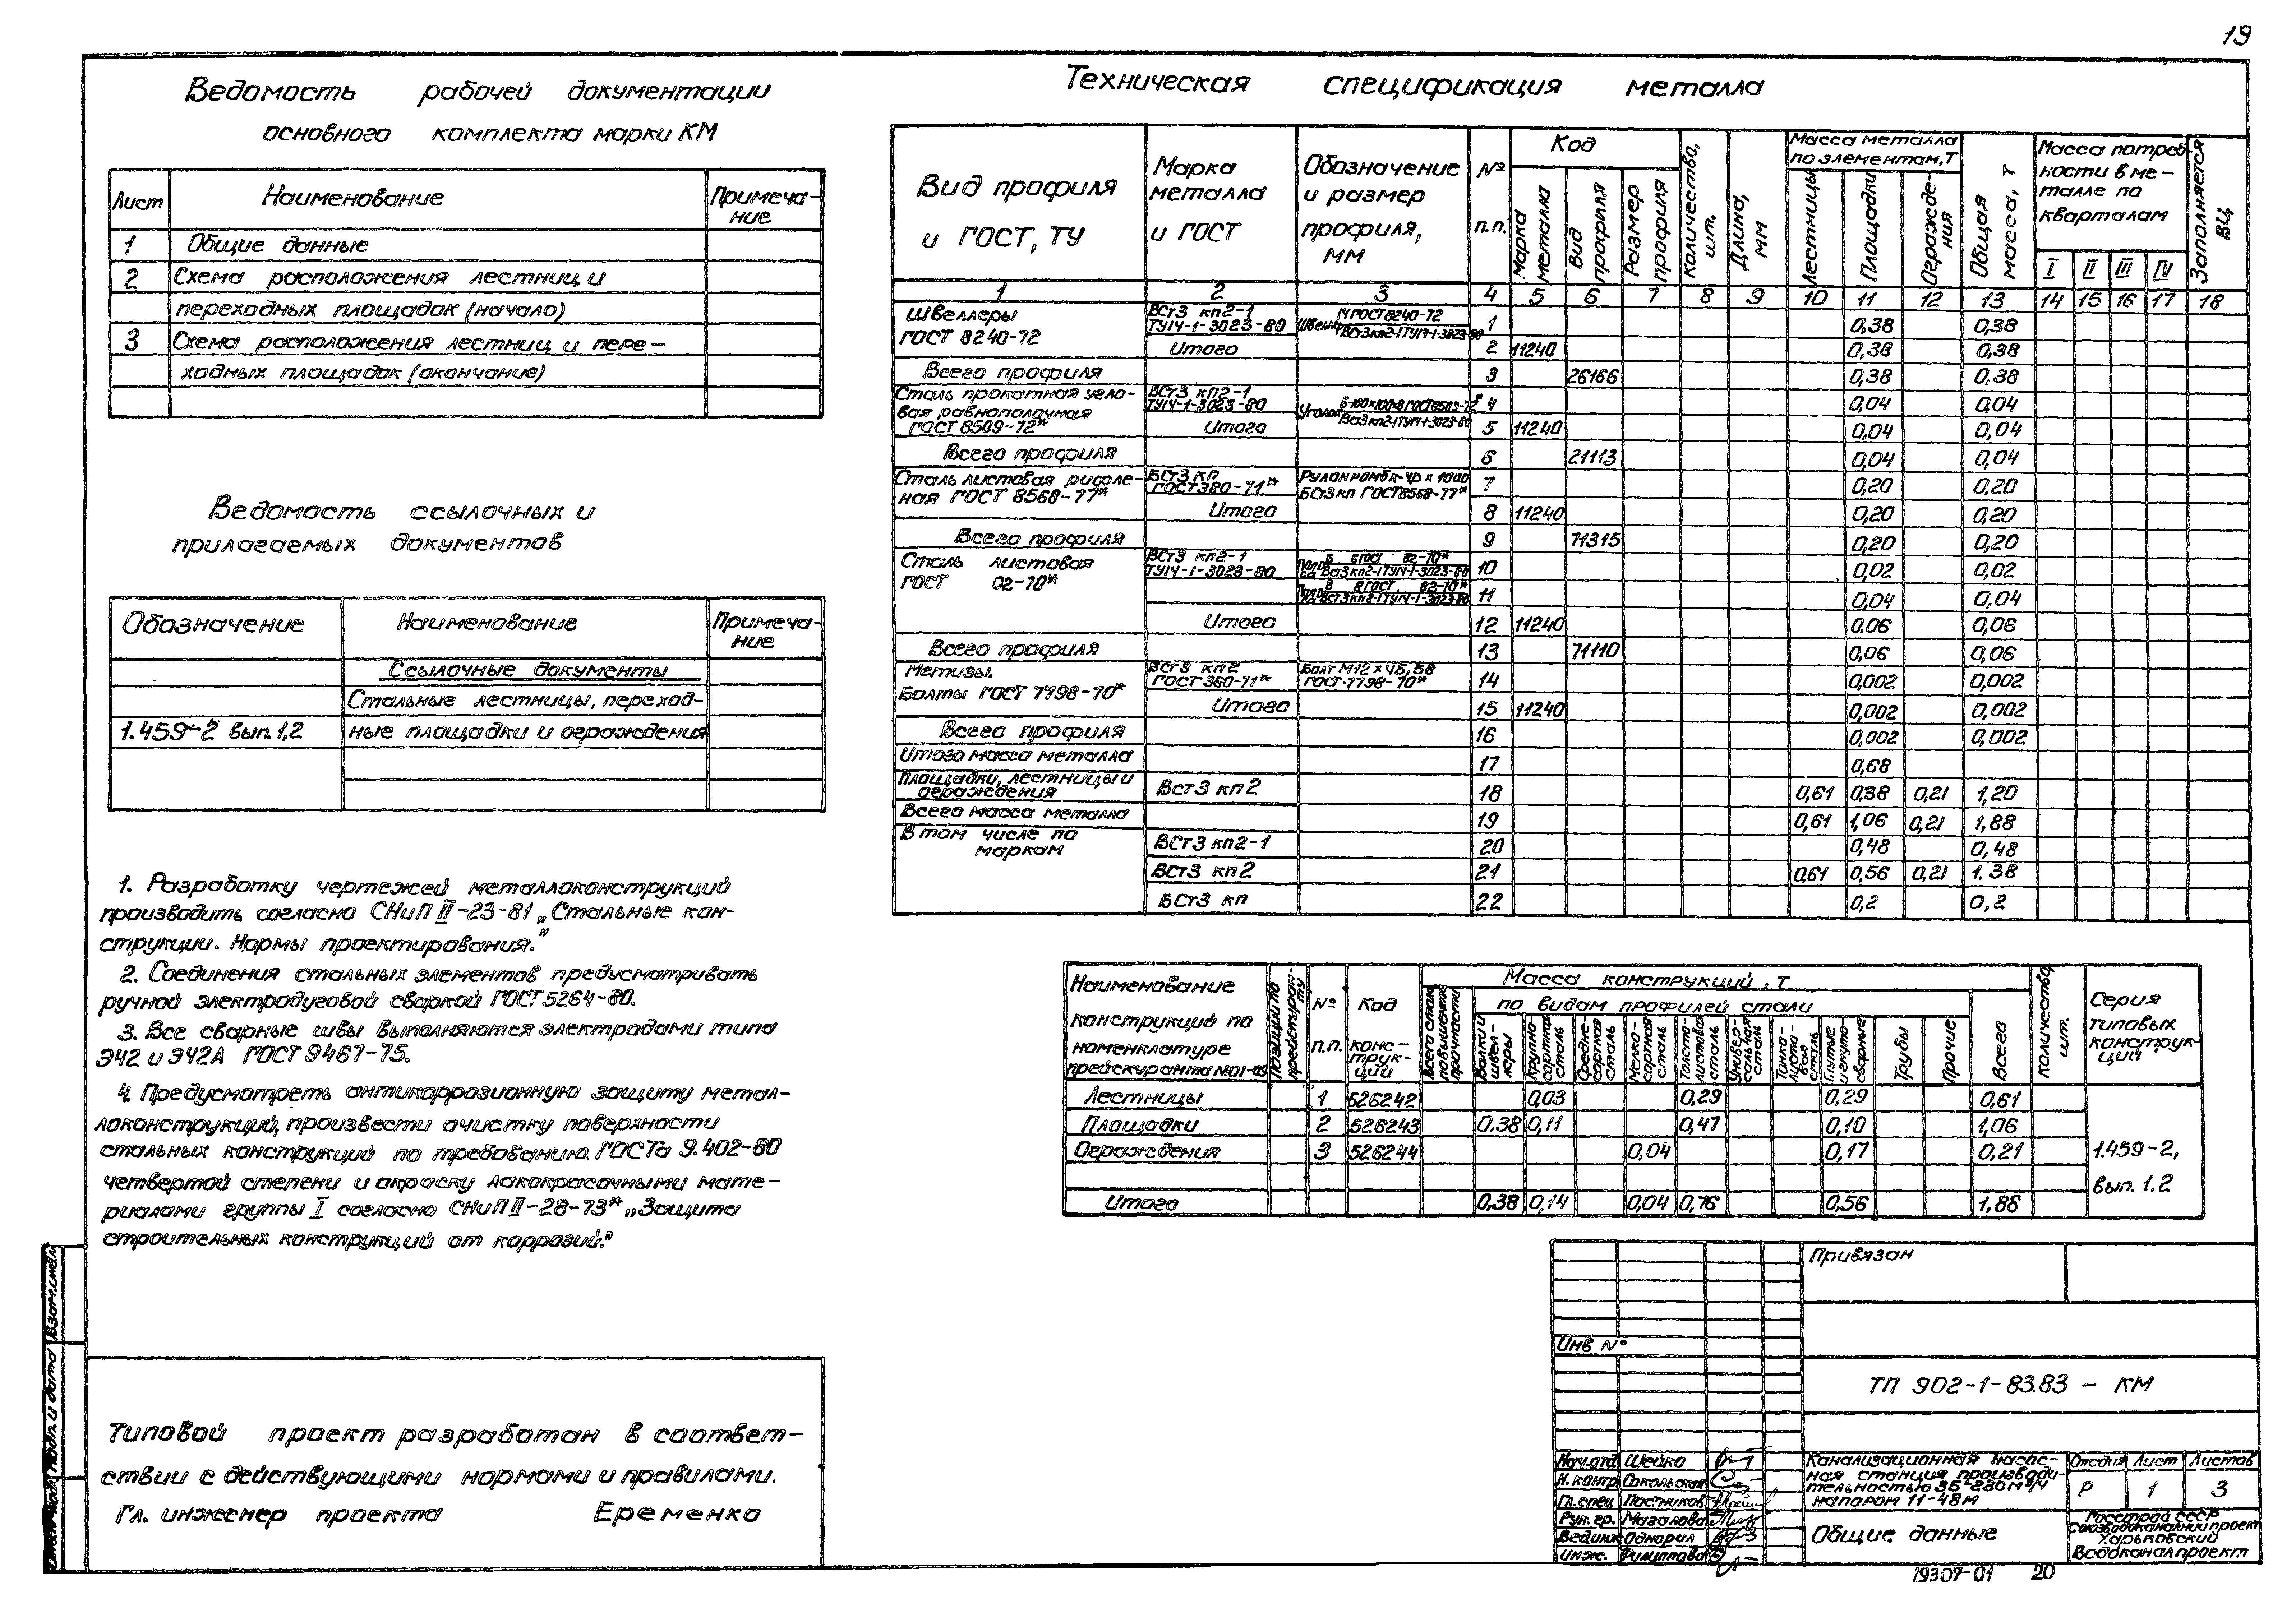 19
Ведомость рабочей документации
основного комплекта марки КМ
Лист Наименование Примеча-
ние
1 Общие данные
2 Схема расположения лестниц и
переходных площадок (начало)
3 Схема расположения лестниц и пере-
ходных площадок (окончание)
Ведомость ссылочных и
прилагаемых документов
Обозначение Наименование Примеча-
ние
Ссылочные документы
Стальные лестницы, переход-
1.459-2 вып. 1,2 ные площадки и ограждения
1. Разработку чертежей металлоконструкций
производить согласно СНиП II-23-81 „Стальные кон-
струкции. Нормы проектирования."
2. Соединения стальных элементов предусматривать
ручной электродуговой сваркой ГОСТ 5264-80.
3. Все сварные швы выполняются электродами типа
Э42 и Э42А ГОСТ 9467-75.
4. Предусмотреть антикоррозионную защиту метал-
локонструкций, произвести очистку поверхности
стальных конструкций по требованию ГОСТа 9.402-80
четвертой степени и окраску лакокрасочными мате-
риалами группы I согласно СНиП II-28-73* „Защита
строительных конструкций от коррозий."
Типовой проект разработан в соответ-
ствии с действующими нормами и правилами.
Гл. инженер проекта Еременко
Взам.инв.№
Подп. и дата
Техническая спецификация металла
Вид профиля и ГОСТ, ТУ
Марка металла и ГОСТ
Обозначение и размер профиля, мм
№ п.п.
Код
Марка металла
Вид профиля
Размер профиля
Количество, шт.
Длина, мм
Масса металла по элементам, Т
Лестницы
Площадки
Ограждения
Общая масса, т
Масса потребности в металле по кварталам
I II III IV
Заполняется ВЦ
1 2 3 4 5 6 7 8 9 10 11 12 13 14 15 16 17 18
Швеллеры ВСт3 кп2-1 ГОСТ 8240-72
ГОСТ 8240-72 ТУ14-1-3023-80 Швеллер ВСт3кп2-1 ТУ14-1-3023-80 1 0,38 0,38
Итого 2 11240 0,38 0,38
Всего профиля 3 26166 0,38 0.38
Сталь прокатная угло- ВСт3 кп2-1
вая равнополочная ТУ14-1-3023-80 Уголок Б-100х100х8 ГОСТ 8509-72* 4 0,04 0,04
ГОСТ 8509-72* Итого ВСт3кп2-1 ТУ14-1-3023-80 5 11240 0,04 0,04
Всего профиля 6 21113 0,04 0,04
Сталь листовая рифле- БСт3 кп Рулон ромб к-4р х 1000 7 0,20 0,20
ная ГОСТ 8568-77* ГОСТ 380-71* БСт3 кп ГОСТ 8568-77*
Итого 8 11240 0,20 0,20
Всего профиля 9 71315 0,20 0,20
Сталь листовая ВСт3 кп2-1 ГОСТ 82-70*
ГОСТ 82-70* ТУ14-1-3023-80 ВСт3кп2-1 ТУ14-1-3023-80 10 0,02 0,02
8 ГОСТ 82-70*
ВСт3кп2-1 ТУ14-1-3023-80 11 0,04 0,04
Итого 12 11240 0.06 0,06
Всего профиля 13 71110 0,06 0,06
Метизы. ВСт3 кп2 Болт М12 х 45,58 14 0,002 0,002
Болты ГОСТ 7798-70* ГОСТ 380-71* ГОСТ 7798-70*
Итого 15 11240 0,002 0,002
Всего профиля 16 0,002 0,002
Итого масса металла 17 0,68
Площадки, лестницы и
ограждения ВСт3 кп2 18 0,61 0,38 0,21 1,20
Всего масса металла 19 0,61 1,06 0,21 1,88
В том числе по
маркам ВСт3 кп2-1 20 0,48 0,48
ВСт3 кп2 21 0,61 0,56 0,21 1.38
БСт3 кп 22 0,2 0,2
Наименование конструкций по номенклатуре прейскуранта №01-09
Позиции по прейскуранту
№ п.п.
Код конструкций
Масса конструкций, Т
Всего стали повышенной прочности
по видам профилей стали
Балки и швеллеры
Крупносортная сталь
Среднесортная сталь
Мелкосортная сталь
Толстолистовая сталь
Универсальная сталь
Тонколистовая сталь
Гнутые и гнутосварные
Трубы
Прочие
Всего
Количество, шт.
Серия типовых конструкций
Лестницы 1 526242 0,03 0,29 0,29 0,61
Площадки 2 526243 0,38 0,11 0,47 0,10 1,06
Ограждения 3 526244 0,04 0,17 0,21 1.459-2,
вып. 1.2
Итого 0,38 0,14 0,04 0,76 0,56 1,88
Привязан
Инв №
ТП 902-1-83.83 - КМ
Нач.отд Шейко
Н.контр Сокольская
Гл.спец Постников
Рук. гр. Мазалова
Вед.инж Однорал
Инж. Филиппова
Канализационная насос-
ная станция производи-
тельностью 35-280м³/ч
напором 11-48м
Стадия Лист Листов
Р 1 3
Общие данные
Госстрой СССР
Союзводоканалниипроект
Харьковский
Водоканалпроект
19307-01 20